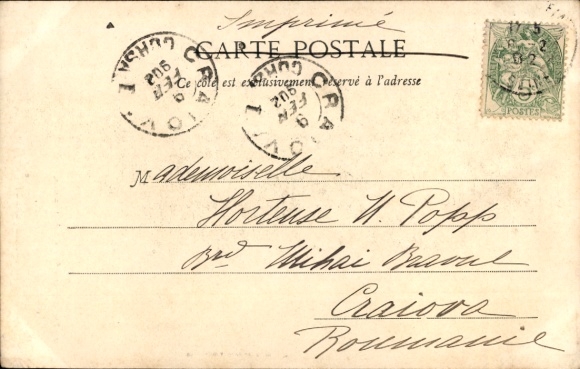 Imprimé
CARTE POSTALE
Ce côté est exclusivement réservé à l'adresse
CRAIOVA
9 FEV 902
CRAIOVA
9 FEV 902
POSTES
Mademoiselle
Hortense N. Popp
Brd Mihai Bravul
Craiova
Roumanie